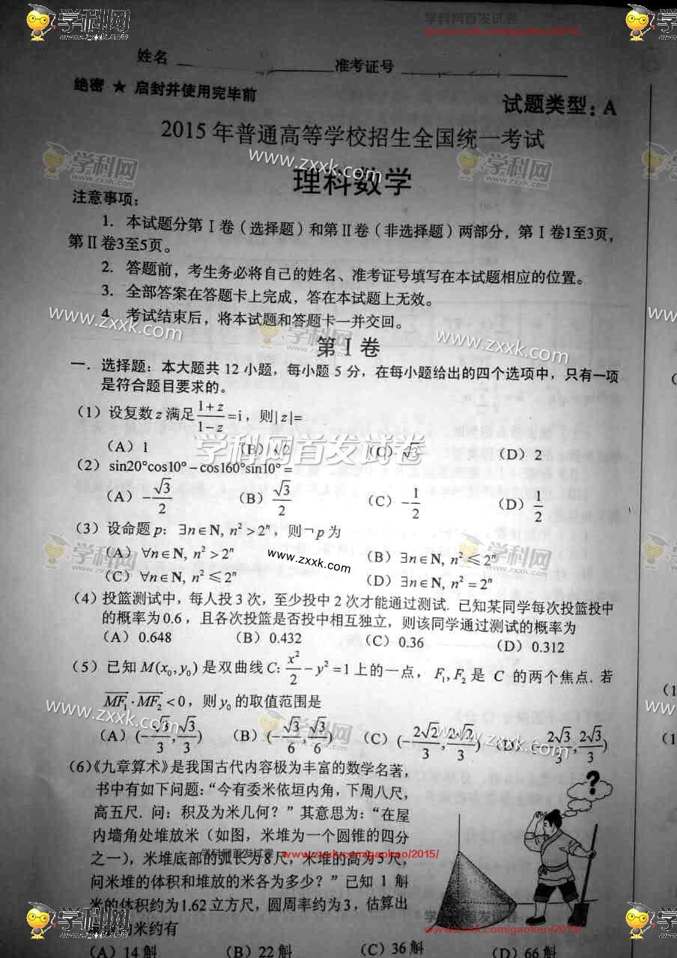 姓名 准考证号
绝密 ★ 启封并使用完毕前
试题类型：A
2015年普通高等学校招生全国统一考试
理科数学
注意事项：
1. 本试题分第Ⅰ卷（选择题）和第Ⅱ卷（非选择题）两部分，第Ⅰ卷1至3页，
第Ⅱ卷3至5页。
2. 答题前，考生务必将自己的姓名、准考证号填写在本试题相应的位置。
3. 全部答案在答题卡上完成，答在本试题上无效。
4. 考试结束后，将本试题和答题卡一并交回。
第Ⅰ卷
一. 选择题：本大题共12小题，每小题5分，在每小题给出的四个选项中，只有一项
是符合题目要求的。
（1）设复数z满足(1+z)/(1−z)=i，则|z|=
（A）1 （B）√2 （C）√3 （D）2
（2）sin20°cos10°−cos160°sin10°=
（A）−√3/2 （B）√3/2 （C）−1/2 （D）1/2
（3）设命题p：∃n∈N, n²>2ⁿ，则¬p为
（A）∀n∈N, n²>2ⁿ （B）∃n∈N, n²≤2ⁿ
（C）∀n∈N, n²≤2ⁿ （D）∃n∈N, n²=2ⁿ
（4）投篮测试中，每人投3次，至少投中2次才能通过测试. 已知某同学每次投篮投中
的概率为0.6，且各次投篮是否投中相互独立，则该同学通过测试的概率为
（A）0.648 （B）0.432 （C）0.36 （D）0.312
（5）已知M(x₀,y₀)是双曲线C: x²/2−y²=1上的一点，F₁,F₂是C的两个焦点. 若
MF₁·MF₂<0，则y₀的取值范围是
（A）(−√3/3, √3/3) （B）(−√3/6, √3/6) （C）(−2√2/3, 2√2/3) （D）2√3/3, 2√3/3)
（6）《九章算术》是我国古代内容极为丰富的数学名著，
书中有如下问题：“今有委米依垣内角，下周八尺，
高五尺. 问：积及为米几何？”其意思为：“在屋
内墙角处堆放米（如图，米堆为一个圆锥的四分
之一），米堆底部的弧长为8尺，米堆的高为5尺，
问米堆的体积和堆放的米各为多少？”已知1斛
米的体积约为1.62立方尺，圆周率约为3，估算出
堆放的米约有
（A）14斛 （B）22斛 （C）36斛 （D）66斛
学科网
www.zxxk.com
学科网首发试卷